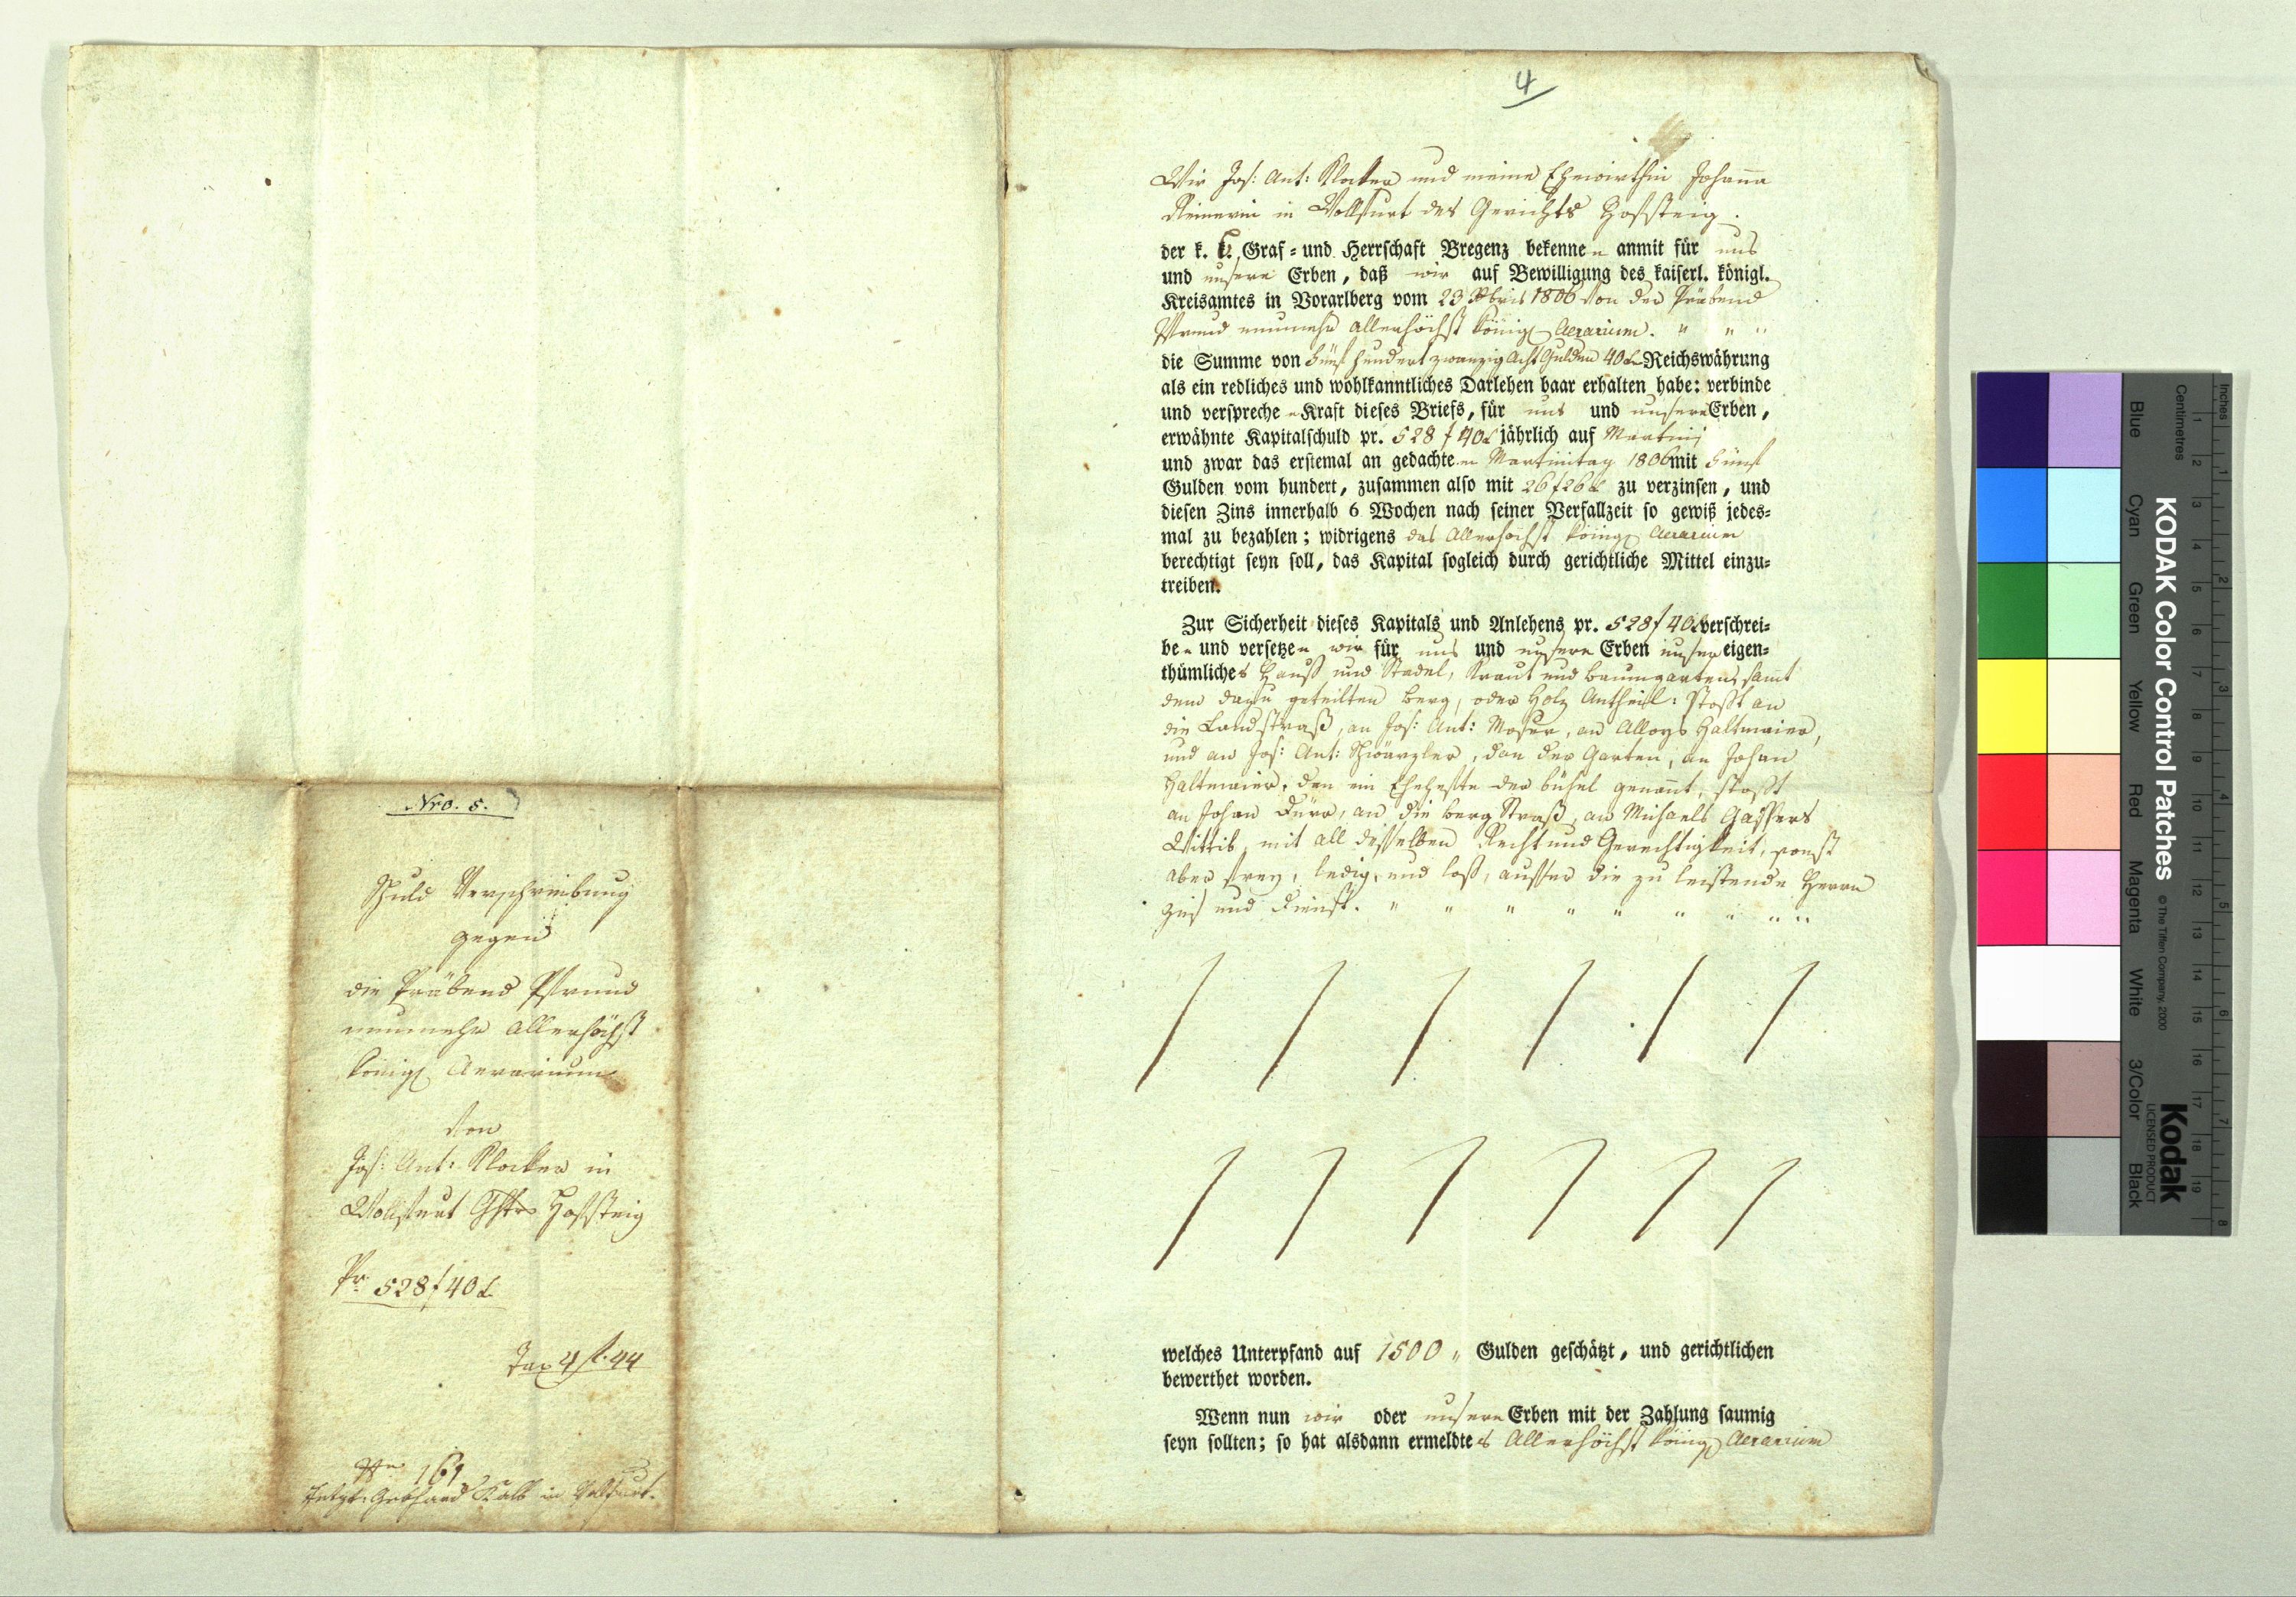 Nro. 5.
Schuld Verschreibung
gegen
die Präbend Pfrund
nunmehr Allerhöchst
königl Aerarium
von
Jos: Ant: Klocker in
Wollfurt Ghts Hofsteig
Pr 528 f 40 x
Tax 4 f. 44
161
Gebhard Kalb in Wolfurt.
4
Wir Jos: Ant: Klocker und meine Ehewirthin Johanna
Reinerin in Wollfurt des Gerichts Hofsteig.
der k. k. Graf- und Herrschaft Bregenz bekennen anmit für uns
und unsere Erben, daß wir auf Bewilligung des kaiserl. königl.
Kreisamtes in Vorarlberg vom 23 1806 von der Präbend
Pfrund nunmehr allerhöchst königl Aerarium. " " "
die Summe von Fünf hundert zwanzig Acht Gulden 40 x Reichswährung
als ein redliches und wohlkanntliches Darlehen baar erhalten habe: verbinde
und verspreche n Kraft dieses Briefs, für uns und unsere Erben,
erwähnte Kapitalschuld pr. 528 f 40 x jährlich auf Martini
und zwar das erstemal an gedachtem Martinitag 1806 mit Fünf
Gulden vom hundert, zusammen also mit 26 f 26 x zu verzinsen, und
diesen Zins innerhalb 6 Wochen nach seiner Verfallzeit so gewiß jedes-
mal zu bezahlen; widrigens das Allerhöchst königl Aerarium
berechtigt seyn soll, das Kapital sogleich durch gerichtliche Mittel einzu-
treiben.
Zur Sicherheit dieses Kapitals und Anlehens pr. 528 f 40 x verschrei-
ben und versetzen wir für uns und unsere Erben unser eigen-
thümliches Hauß und Stadel, Kraut und Baumgarten, samt
dem dazu geteilten Berg, oder Holz Antheil: stoßt an
die Landstraß, an Jos: Ant: Moser, an Alloys Haltmaier,
und an Jos: Ant: Schwärzler, dan der Garten, an Johan
Haltmaier, dan ein der bühel genannt, stoßt
an Johan Dürr, an die berg Straß, an Michaels Gassers
Wittib, mit all desselben Recht und Gerechtigkeit, sonst
aber frey, ledig, und loß, ausser die zu leistende Herrn
Zins und Dienst. " " " " " " " " "
welches Unterpfand auf 1500 " Gulden geschätzt, und gerichtlichen
bewerthet worden.
Wenn nun wir oder unsere Erben mit der Zahlung saumig
seyn sollten; so hat alsdann ermeldtes Allerhöchst königl Aerarium
Inches
Centimetres
1 2 3 4 5 6 7 8 9 10 11 12 13 14 15 16 17 18 19
1 2 3 4 5 6 7 8
Blue Cyan Green Yellow Red Magenta White 3/Color Black
KODAK Color Control Patches
© The Tiffen Company, 2000
Kodak
LICENSED PRODUCT